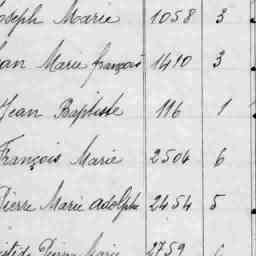 Joseph Marie 1058 3
Jean Marie françois 1410 3
Jean Baptiste 116 1
François Marie 2504 6
Pierre Marie adolphe 2454 5
Pierre Marie 2759